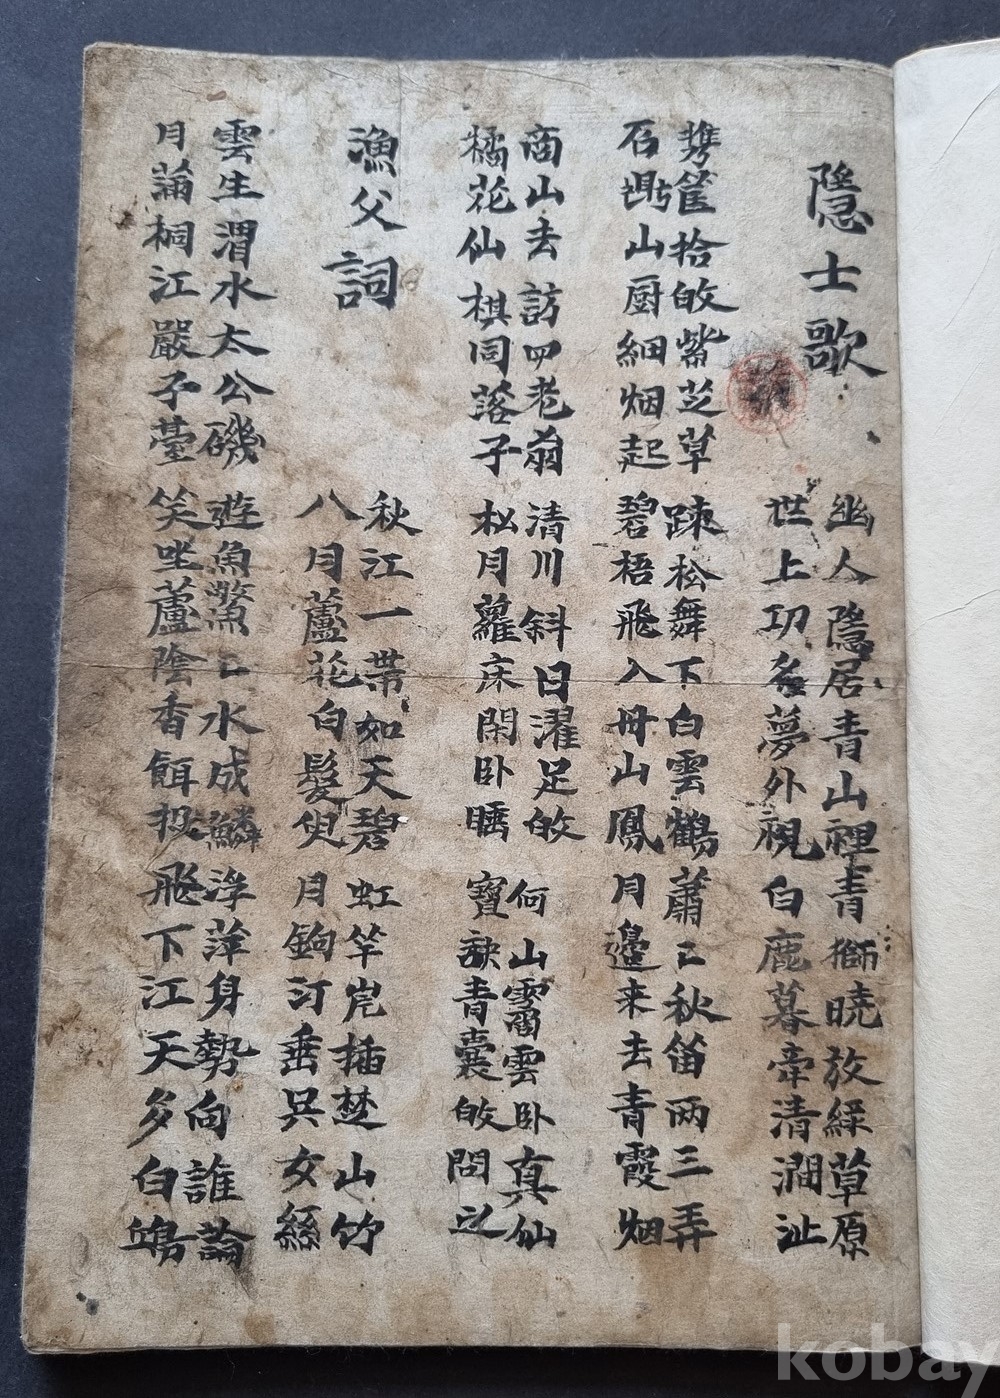 隱士歌
幽人隱居青山裡 青獅曉放綠草原
世上功名夢外視 白鹿暮牽清澗沚
携筐拾皈紫芝草 疎松舞下白雲鶴 蕭〻秋笛兩三弄
石鼎山厨細烟起 碧梧飛入丹山鳳 月邊来去青霞烟
商山去訪四老翁 清川斜日濯足皈 何山霱雲卧真仙
橘花仙棋同落子 松月蘿床閑卧睡 寶訣青囊皈問之
漁父詞
秋江一帶如天碧 虹竿岸插楚山竹
八月蘆花白髮叟 月鉤汀垂吳女絲
雲生渭水太公磯 遊魚驚〻水成鱗 浮萍身勢向誰論
月滿桐江嚴子臺 笑坐蘆陰香餌投 飛下江天夕白鴎
kobay